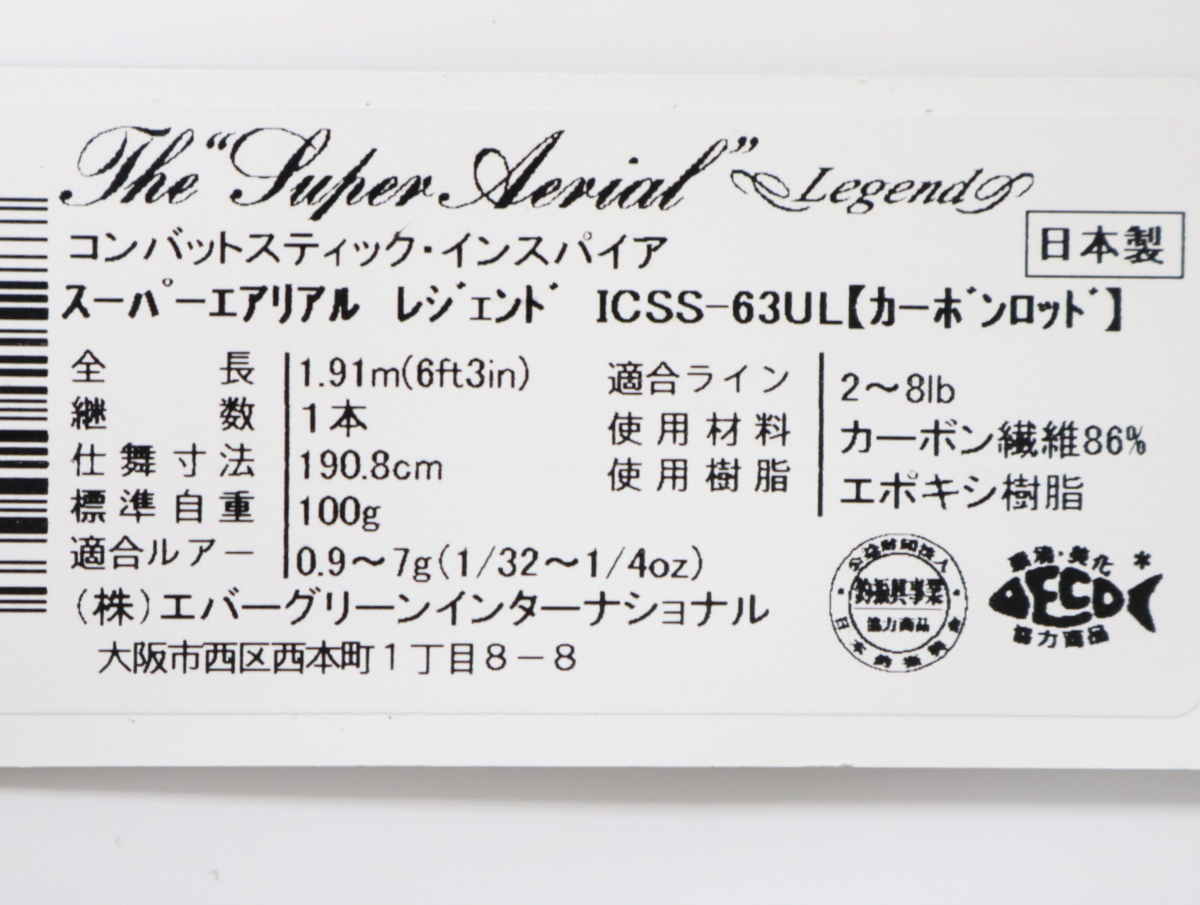 The "Super Aerial" Legend
コンバットスティック・インスパイア
日本製
スーパーエアリアル レジェンド ICSS-63UL【カーボンロッド】
全長 1.91m(6ft3in)
継数 1本
仕舞寸法 190.8cm
標準自重 100g
適合ルアー 0.9～7g(1/32～1/4oz)
適合ライン 2～8lb
使用材料 カーボン繊維86%
使用樹脂 エポキシ樹脂
(株)エバーグリーンインターナショナル
大阪市西区西本町1丁目8-8
公益財団法人
釣振興事業
協力商品
環境・美化
ECO
協力商品